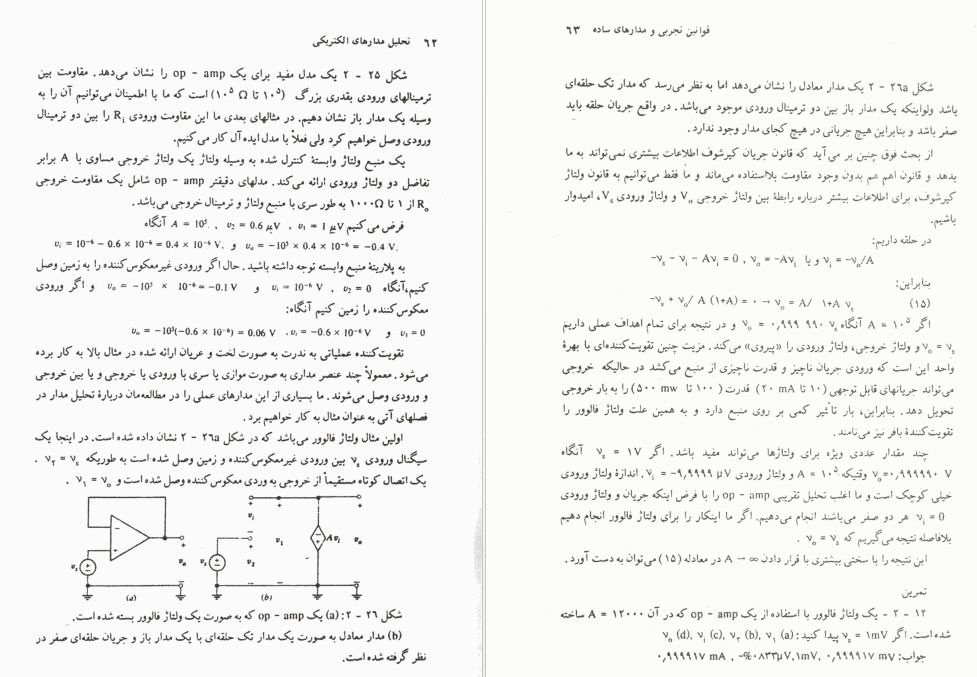 ۶۲ تحلیل مدارهای الکتریکی
شکل ۲۵ - ۲ یک مدل مفید برای یک op - amp را نشان می‌دهد. مقاومت بین
ترمینالهای ورودی بقدری بزرگ (۱۰⁵ تا Ω ۱۰⁵) است که ما با اطمینان می‌توانیم آن را به
وسیله یک مدار باز نشان دهیم. در مثالهای بعدی ما این مقاومت ورودی Rᵢ را بین دو ترمینال
ورودی وصل خواهیم کرد ولی فعلاً با مدل ایده آل کار می‌کنیم.
یک منبع ولتاژ وابستهٔ کنترل شده به وسیله ولتاژ یک ولتاژ خروجی مساوی با A برابر
تفاضل دو ولتاژ ورودی ارائه می‌کند. مدلهای دقیقتر op - amp شامل یک مقاومت خروجی
Rₒ از ۱ تا ۱۰۰۰Ω به طور سری با منبع ولتاژ و ترمینال خروجی می‌باشد.
فرض می‌کنیم v₁ = 1 μV ، v₂ = 0.6 μV ، A = 10⁵. آنگاه
vᵢ = 10⁻⁶ − 0.6 × 10⁻⁶ = 0.4 × 10⁻⁶ V. و vₒ = −10⁵ × 0.4 × 10⁻⁶ = −0.4 V.
به پلاریتهٔ منبع وابسته توجه داشته باشید. حال اگر ورودی غیرمعکوس‌کننده را به زمین وصل
کنیم،آنگاه v₂ = 0 ، vᵢ = 10⁻⁶ V و vₒ = −10⁵ × 10⁻⁶ = −0.1 V و اگر ورودی
معکوس‌کننده را زمین کنیم آنگاه:
vₒ = −10⁵(−0.6 × 10⁻⁶) = 0.06 V .vᵢ = −0.6 × 10⁻⁶ V و v₁ = 0
تقویت‌کننده عملیاتی به ندرت به صورت لخت و عریان ارائه شده در مثال بالا به کار برده
می‌شود. معمولاً چند عنصر مداری به صورت موازی یا سری با ورودی یا خروجی و یا بین خروجی
و ورودی وصل می‌شوند. ما بسیاری از این مدارهای عملی را در مطالعه‌مان دربارهٔ تحلیل مدار در
فصلهای آتی به عنوان مثال به کار خواهیم برد.
اولین مثال ولتاژ فالوور می‌باشد که در شکل ۲۶a - ۲ نشان داده شده است. در اینجا یک
سیگنال ورودی vₛ بین ورودی غیرمعکوس‌کننده و زمین وصل شده است به طوریکه v₂ = vₛ .
یک اتصال کوتاه مستقیماً از خروجی به وردی معکوس‌کننده وصل شده است و v₁ = vₒ .
vₛ vₒ (a)
vₛ v₂ vᵢ v₁ Avᵢ vₒ (b)
شکل ۲۶ - ۲: (a) یک op - amp که به صورت یک ولتاژ فالوور بسته شده است.
(b) مدار معادل به صورت یک مدار تک حلقه‌ای با یک مدار باز و جریان حلقه‌ای صفر در
نظر گرفته شده است.
قوانین تجربی و مدارهای ساده ۶۳
شکل ۲۶a - ۲ یک مدار معادل را نشان می‌دهد اما به نظر می‌رسد که مدار تک حلقه‌ای
باشد ولواینکه یک مدار باز بین دو ترمینال ورودی موجود می‌باشد. در واقع جریان حلقه باید
صفر باشد و بنابراین هیچ جریانی در هیچ کجای مدار وجود ندارد.
از بحث فوق چنین بر می‌آید که قانون جریان کیرشوف اطلاعات بیشتری نمی‌تواند به ما
بدهد و قانون اهم هم بدون وجود مقاومت بلااستفاده می‌ماند و ما فقط می‌توانیم به قانون ولتاژ
کیرشوف، برای اطلاعات بیشتر درباره رابطهٔ بین ولتاژ خروجی Vₒ و ولتاژ ورودی Vₛ، امیدوار
باشیم.
در حلقه داریم:
-vₛ - vᵢ - Avᵢ = 0 , vₒ = -Avᵢ و یا vᵢ = -vₒ/A
بنابراین:
-vₛ + vₒ/ A (1+A) = ۰ → vₒ = A/ 1+A vₛ (۱۵)
اگر A = ۱۰⁵ آنگاه vₒ = ۰٫۹۹۹ ۹۹۰ vₛ و در نتیجه برای تمام اهداف عملی داریم
vₒ = vₛ و ولتاژ خروجی، ولتاژ ورودی را «پیروی» می‌کند. مزیت چنین تقویت‌کننده‌ای با بهرهٔ
واحد این است که ورودی جریان ناچیز و قدرت ناچیزی از منبع می‌کشد در حالیکه خروجی
می‌تواند جریانهای قابل توجهی (۱۰ تا ۲۰ mA) قدرت (۱۰۰ تا ۵۰۰ mw) را به بار خروجی
تحویل دهد. بنابراین، بار تأثیر کمی بر روی منبع دارد و به همین علت ولتاژ فالوور را
تقویت‌کنندهٔ بافر نیز می‌نامند.
چند مقدار عددی ویژه برای ولتاژها می‌تواند مفید باشد. اگر vₛ = ۱V آنگاه
vₒ=۰٫۹۹۹۹۹۰ V وقتیکه A = ۱۰⁵ و ولتاژ ورودی vᵢ = -۹٫۹۹۹۹ μV. اندازهٔ ولتاژ ورودی
خیلی کوچک است و ما اغلب تحلیل تقریبی op - amp را با فرض اینکه جریان و ولتاژ ورودی
vᵢ = 0 هر دو صفر می‌باشند انجام می‌دهیم. اگر ما اینکار را برای ولتاژ فالوور انجام دهیم
بلافاصله نتیجه می‌گیریم که vₒ = vₛ .
این نتیجه را با سختی بیشتری با قرار دادن A → ∞ در معادله (۱۵) می‌توان به دست آورد.
تمرین
۱۲ - ۲ - یک ولتاژ فالوور با استفاده از یک op - amp که در آن A = ۱۲۰۰۰ ساخته
شده است. اگر vₛ = ۱mV پیدا کنید: (a) v₁, (b) v₂, (c) vᵢ, (d) vₒ
جواب: ۰٫۹۹۹۹۱۷ mA , -%۰۸۳۳μV,۱mV, ۰٫۹۹۹۹۱۷ mV